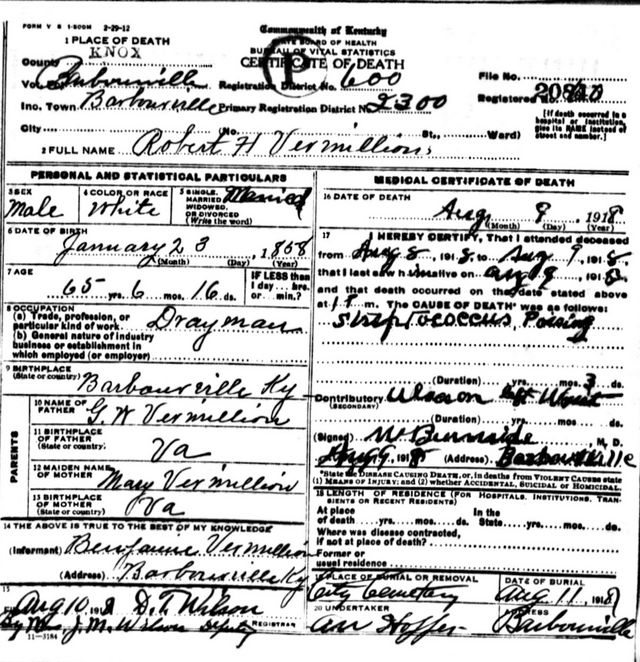 FORM V S 1-500M 2-29-12
Commonwealth of Kentucky
STATE BOARD OF HEALTH
BUREAU OF VITAL STATISTICS
CERTIFICATE OF DEATH
1 PLACE OF DEATH
County KNOX
Vot. Barbourville Registration District No. 600
File No.
Inc. Town Barbourville Primary Registration District No. 2300
Registered No.
[If death occurred in a hospital or institution, give its NAME instead of street and number.]
City No. St., Ward)
2 FULL NAME Robert H Vermillion
PERSONAL AND STATISTICAL PARTICULARS
3 SEX Male
4 COLOR OR RACE White
5 SINGLE, MARRIED, WIDOWED, OR DIVORCED (Write the word) Married
6 DATE OF BIRTH
January 23 1858
(Month) (Day) (Year)
7 AGE
65 yrs. 6 mos. 16 ds.
IF LESS than 1 day... hrs. or min.?
8 OCCUPATION
(a) Trade, profession, or particular kind of work Drayman
(b) General nature of industry business or establishment in which employed (or employer)
9 BIRTHPLACE (State or country) Barbourville Ky
PARENTS
10 NAME OF FATHER G W Vermillion
11 BIRTHPLACE OF FATHER (State or country) Va
12 MAIDEN NAME OF MOTHER Mary Vermillion
13 BIRTHPLACE OF MOTHER (State or country) Va
14 THE ABOVE IS TRUE TO THE BEST OF MY KNOWLEDGE
(Informant) Benjamine Vermillion
(Address) Barbourville Ky
15
Aug 10 191 D. T. Wilson
REGISTRAR
By J. M. Wilson Deputy
11-3184
MEDICAL CERTIFICATE OF DEATH
16 DATE OF DEATH
Aug 9 1918
(Month) (Day) (Year)
17 I HEREBY CERTIFY, That I attended deceased
from Aug 8 1918, to Aug 1918,
that I last saw h alive on Aug 9 191
and that death occurred on the date stated above
at 1 P m. The CAUSE OF DEATH was as follows:
Streptococcus
(Duration) yrs. mos. 3 ds.
Contributory (SECONDARY)
(Duration) yrs. mos. ds.
(Signed) M. D.
Aug 9, 1918 (Address) Barbourville
*State the DISEASE CAUSING DEATH, or, in deaths from VIOLENT CAUSES state (1) MEANS OF INJURY; and (2) whether ACCIDENTAL, SUICIDAL or HOMICIDAL.
18 LENGTH OF RESIDENCE (FOR HOSPITALS, INSTITUTIONS, TRANSIENTS OR RECENT RESIDENTS)
At place of death yrs. mos. ds. In the State yrs. mos. ds.
Where was disease contracted, if not at place of death?
Former or usual residence
19 PLACE OF BURIAL OR REMOVAL City Cemetery
DATE OF BURIAL Aug 11 191
20 UNDERTAKER
ADDRESS Barbourville